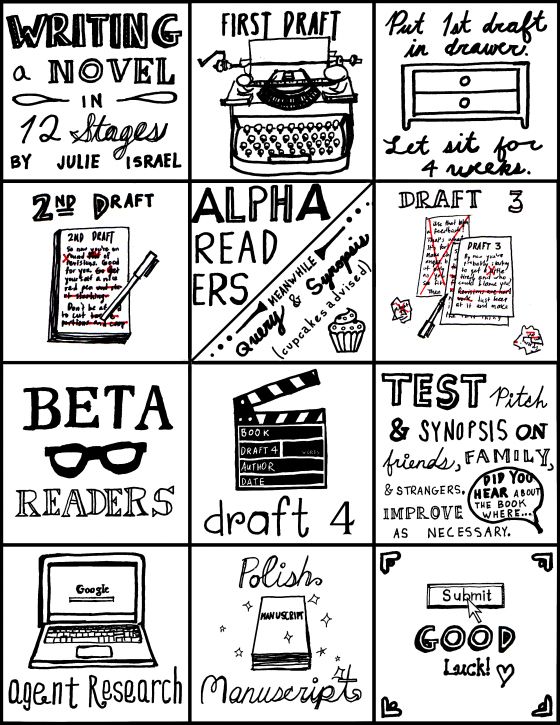 WRITING
a NOVEL
IN
12 Stages
BY JULIE ISRAEL
FIRST DRAFT
Put 1st draft
in drawer.
Let sit for
4 weeks.
2ND DRAFT
2ND DRAFT
So now you're on
round of
revisions. Good
for you. Go get
yourself a nice
red pen
Don't be
to cut
ALPHA
READ
ERS
MEANWHILE
Query & Synopsis
(cupcakes advised)
DRAFT 3
DRAFT 3
By now you're
probably starting
to get
tired, and who
could blame you?
Just keep
at it and make
BETA
READERS
BOOK
DRAFT 4 WORDS
AUTHOR
DATE
draft 4
TEST Pitch
& SYNOPSIS ON
friends, FAMILY,
& STRANGERS.
IMPROVE
AS NECESSARY.
DID YOU
HEAR ABOUT
THE BOOK
WHERE...
Google
agent Research
Polish
MANUSCRIPT
Manuscript
Submit
GOOD
Luck!